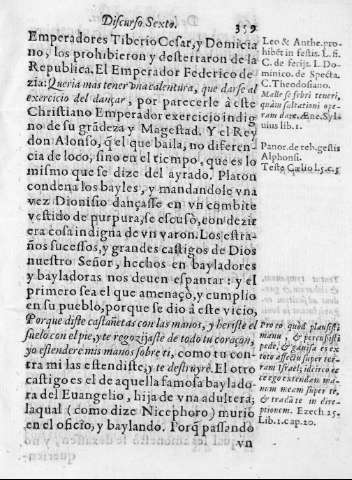 Discurso Sexto.
359
Emperadores Tiberio Cesar, y Domicia
no, los prohibieron y desterraron de la
Republica. El Emperador Federico de
zia: Queria mas tener vna calentura, que darse al
exercicio del dançar, por parecerle à este
Christiano Emperador exercicio indig
no de su grãdeza y Magestad. Y el Rey
don Alonso, q̃ el que baila, no diferen
cia de loco, sino en el tiempo, que es lo
mismo que se dize del ayrado. Platon
condena los bayles, y mandandole vna
vez Dionisio dançasse en vn combite
vestido de purpura, se escusò, con dezir
era cosa indigna de vn varon. Los estra-
ños sucessos, y grandes castigos de Dios
nuestro Señor, hechos en bayladores
y bayladoras nos deuen espantar: y el
primero sea el que amenaçò, y cumplio
en su pueblo, porque se dio à este vicio,
Porque diste castañetas con las manos, y heriste el
suelo con el pie, y te regozijaste de todo tu coraçon,
yo estenderè mis manos sobre ti, como tu con
tra mi las estendiste, y te destruyrè. El otro
castigo es el de aquella famosa baylado
ra del Euangelio, hija de vna adultera;
laqual (como dize Nicephoro) murio
en el oficio, y baylando. Porq̃ passando
vn
Leo & Anthe. pro-
hibẽt in festis. L. fi.
C. de ferijs. l. Do-
minico. de Specta.
C. Theodosiano.
Malle se febri teneri,
quàm saltationi ope-
ram dare. Æne. Syl-
uius lib. 1.
Panor. de reb. gestis
Alphonsi.
Teste Cælio l. 5. c. 3
Pro eo quòd plausisti
manu, & percussisti
pede, & gauisa es ex
toto affectu super ter-
ram Israel; idcirco ec
ce ego extendam ma-
num meam super te,
& tradã te in dire-
ptionem. Ezech. 25.
Lib. 1. cap. 20.